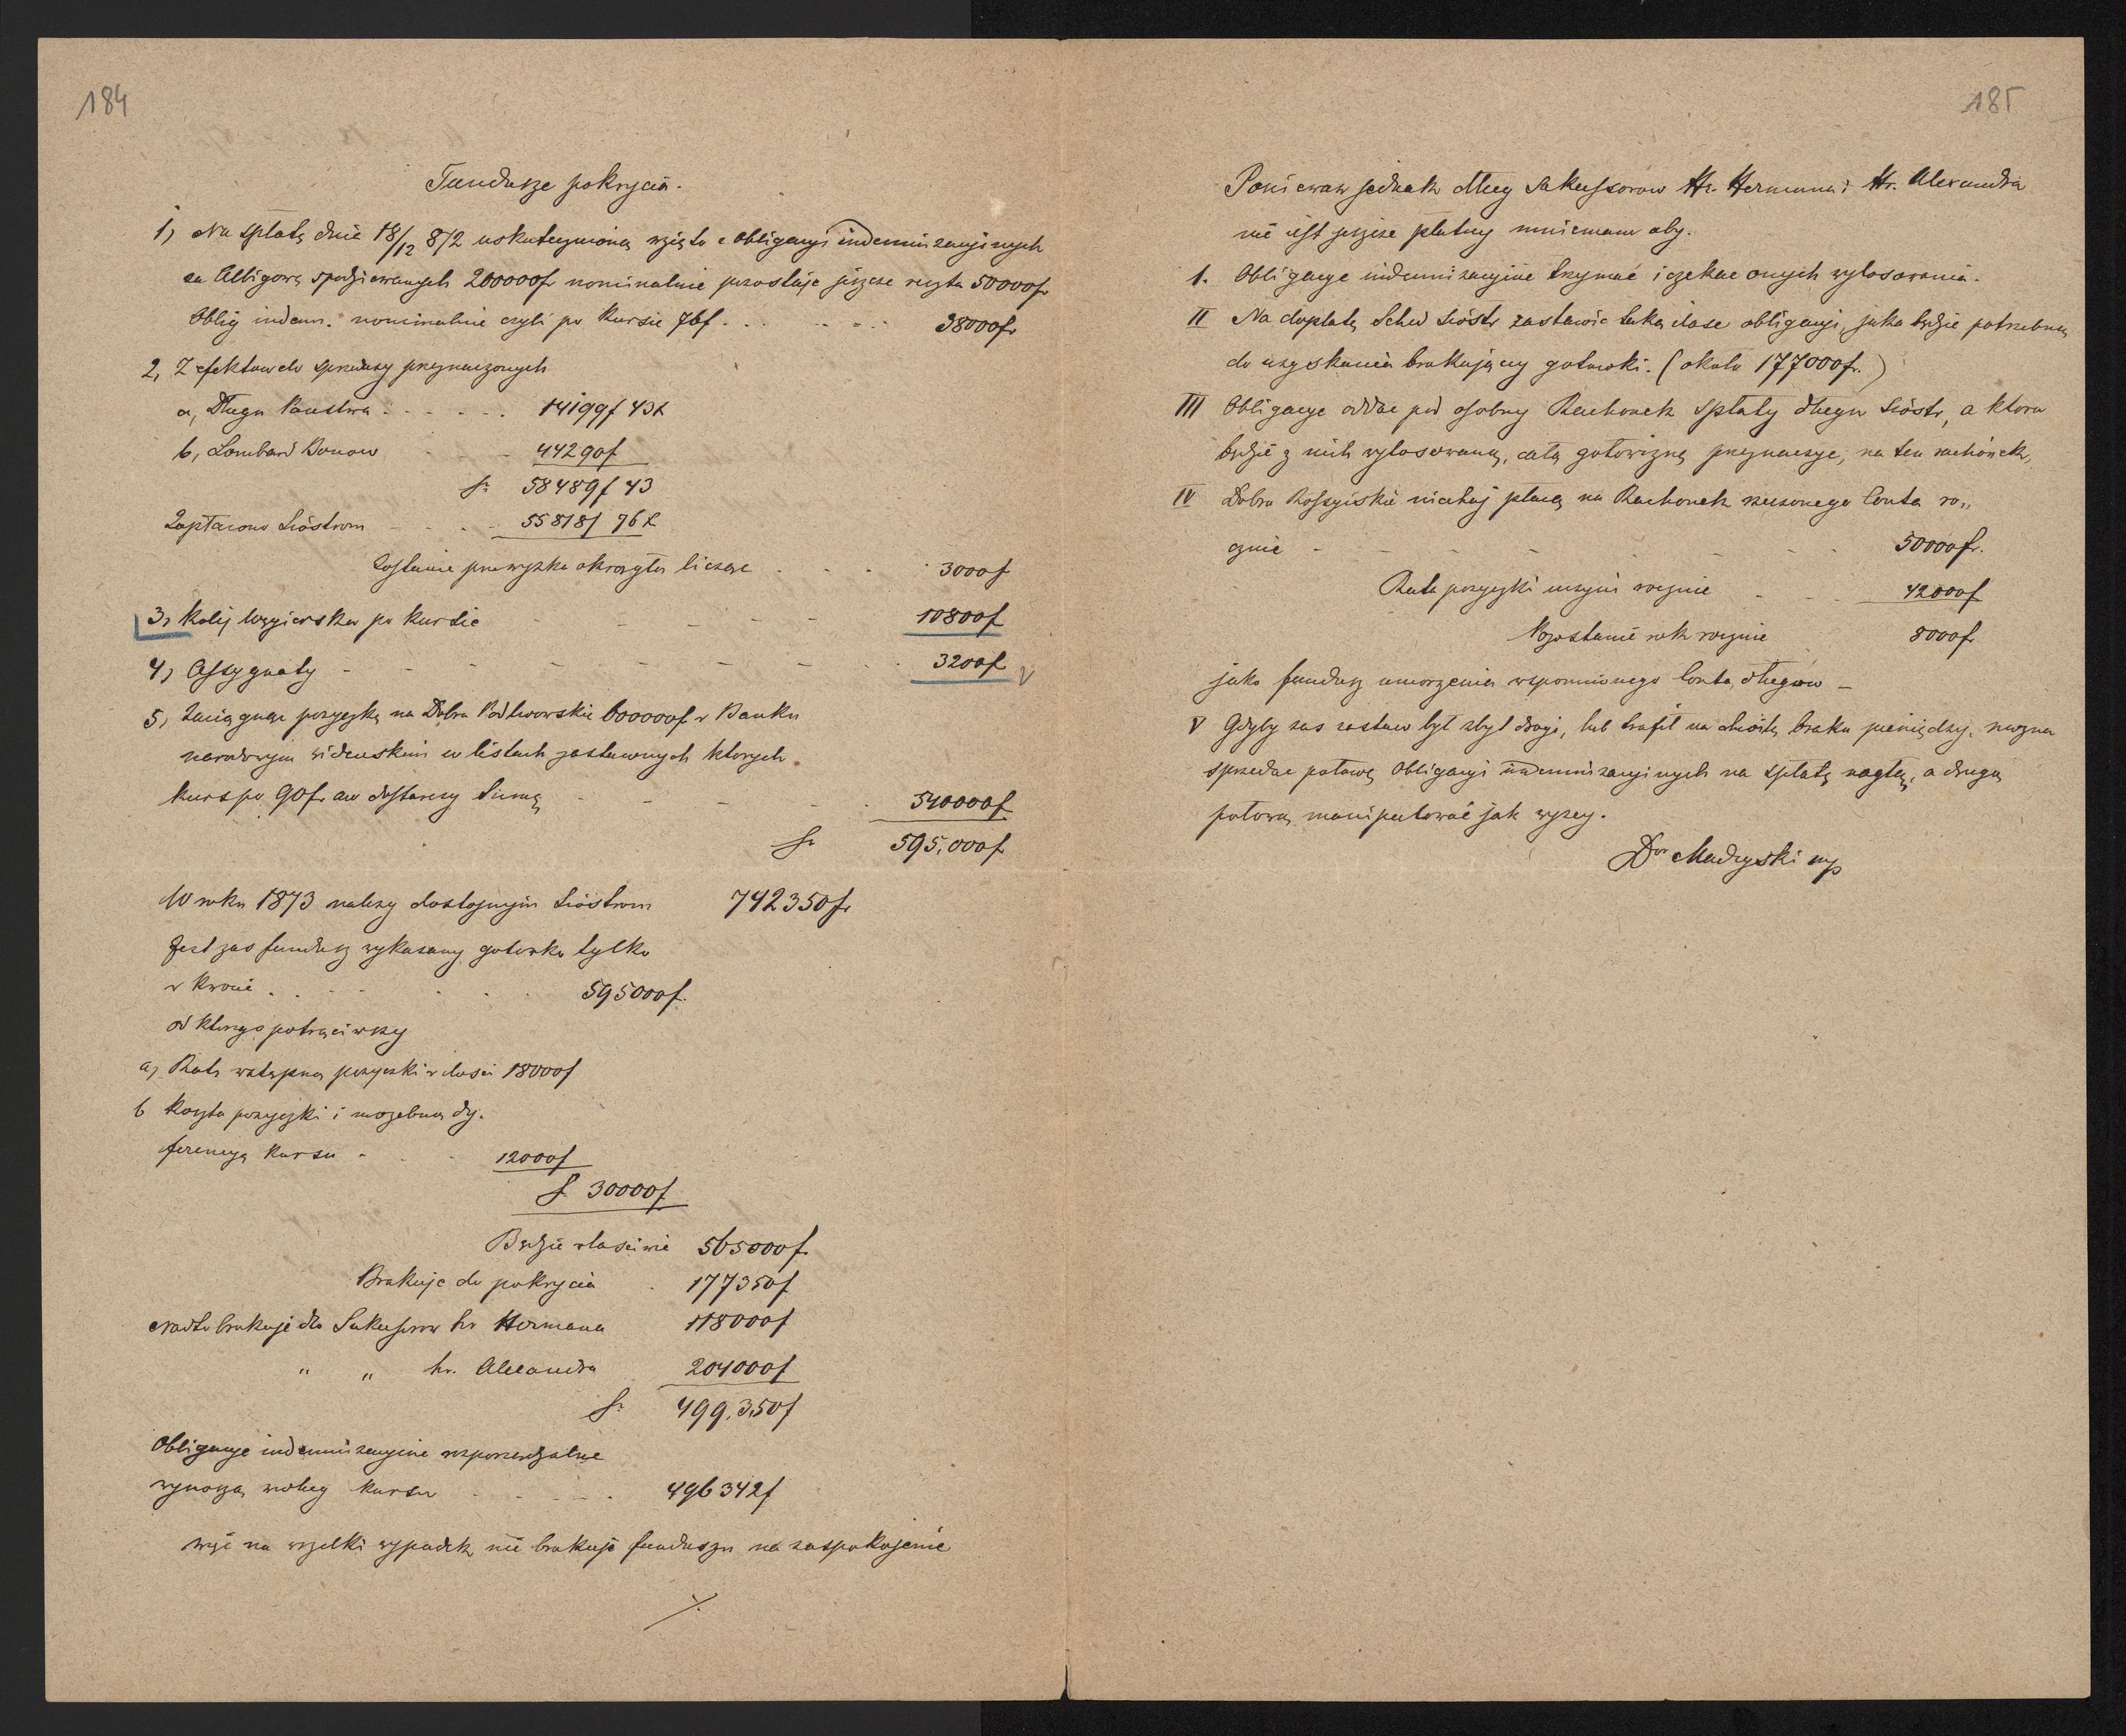 184
Fundusze pokrycia.
1, Na spłatę dnia 18/12 872 uskutecznioną wzięto z obligacyi indemnizacyjnych
za Albigowę spodziewanych 200000f nominalnie pozostaje jeszcze reszta 50000f
Oblig indemn. nominalnie czyli po kursie 76f. . . . . . . 38000fr
2, Z efektów do sprzedaży przeznaczonych
a, Długu Państwa . - - - - . 14199f 43x
b, Lombard Bonow - - - 44290f
Sr. 58489f 43
Zapłacono Siostrom - - - 55818f 76x
Zostanie przewyżka okrągło licząc . . . . 3000f
3, Kolej węgierska po kursie - - - - - 10800f
4, Assygnaty - - - - - - - - 3200f
5, Zaciągnąć pożyczkę na Dobra Podlwowskie 600000f w Banku
narodowym wiedeńskim w listach zastawnych których
kurs po 90fr aw dostarczy sumę - - - - 540000f
Sr 595,000f
W roku 1873 należy dostojnym Siostrom 742350fr
Jest zas fundusz wykazany gotowką tylko
w kwocie . . . . . . 595000f.
od którego potrąciwszy
a, Ratę wstępną pożyczki w ilości 18000f
b Koszta pożyczki i możebną dy.
ferencyą kursu - . . 12000f
S. 30000f
Będzie właściwie 565000f.
Brakuje do pokrycia . 177350f
Nadto brakuje dla Sukcessorow hr Hermana 118000f
" " hr. Alexandra 204000f
Sr. 499,350f
Obligacye indemnizacyjne rozporządzalne
wynoszą według kursu - - - - . 496342f
więc na wszelki wypadek nie brakuje funduszu na zaspokojenie
./.
185
Ponieważ jednak dług Sukcessorow Hr. Hermana i Hr. Alexandra
nie jest jeszcze płatny mniemam aby.
1. Obligacye indemnizacyjne trzymać i czekać onych wylosowania.
II Na dopłatę Sched Sióstr zastawić taką ilość obligacyi, jaka będzie potrzebną
do uzyskania brakującej gotowki. (około 177000fr.)
III Obligacye oddać pod osobny Rachonek spłaty długu Sióstr, a która
będzie z nich wylosowaną, całą gotowiznę przeznaczyć, na ten rachonek,
IV Dobra Rossyjskie niechaj płacą na Rachonek rzeczonego Conta ro„
cznie - - - - - - - - 50000fr.
Rata pożyczki uczyni rocznie - - - 42000f
Pozostanie rok rocznie 8000f
jako fundusz umorzenia wspomnionego Conta długow -
V Gdyby zas zastaw był zbyt drogi, lub trafił na chwilę braku pieniędzy, można
sprzedac połowę Obligacyi indemnizacyjnych na spłatę nagłą, a drugą
połową manipulować jak wyżej.
Dor Madeyski mp